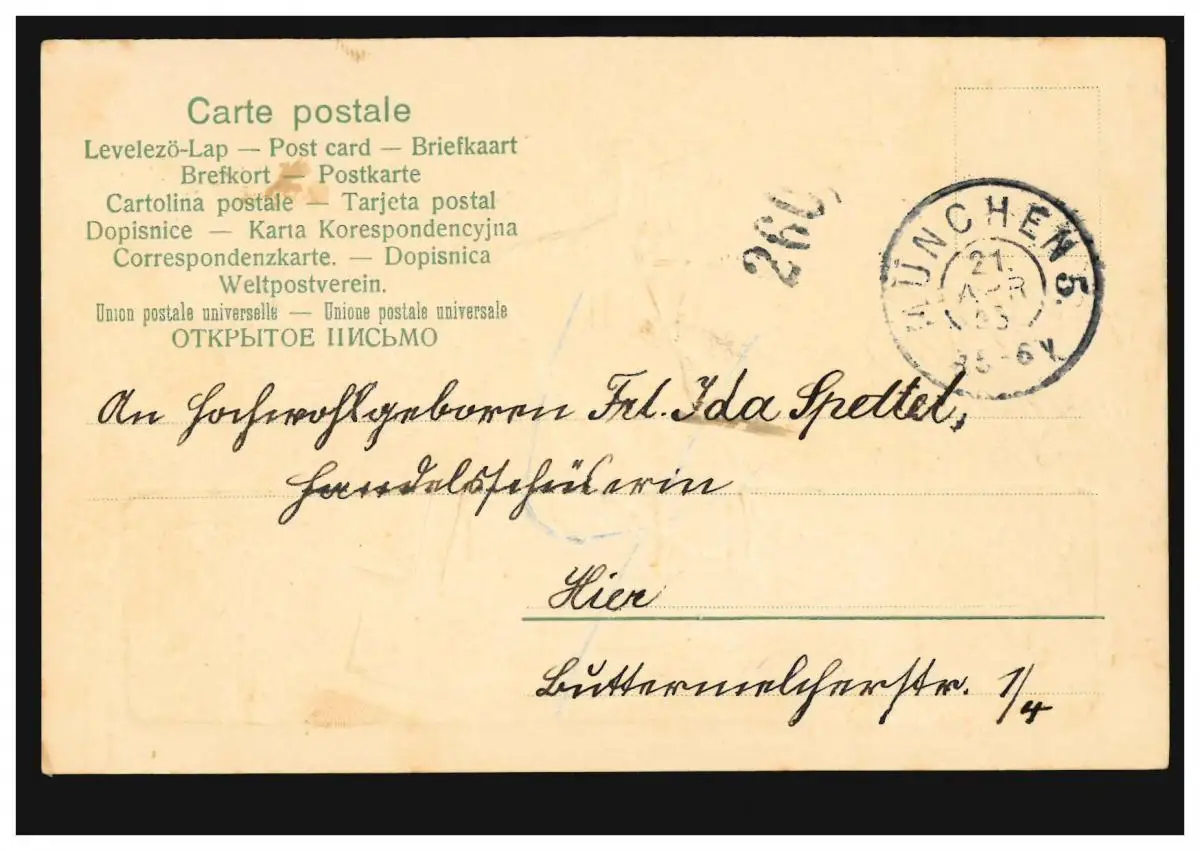 Carte postale
Levelezö-Lap — Post card — Briefkaart
Brefkort — Postkarte
Cartolina postale — Tarjeta postal
Dopisnice — Karta Korespondencyjna
Correspondenzkarte. — Dopisnica
Weltpostverein.
Union postale universelle — Unione postale universale
ОТКРЫТОЕ ПИСЬМО
260
MÜNCHEN 5.
21.
An Hochwohlgeboren Frl. Ida Spettel,
Handelsschülerin
Hier
Buttermelcherstr. 1/4